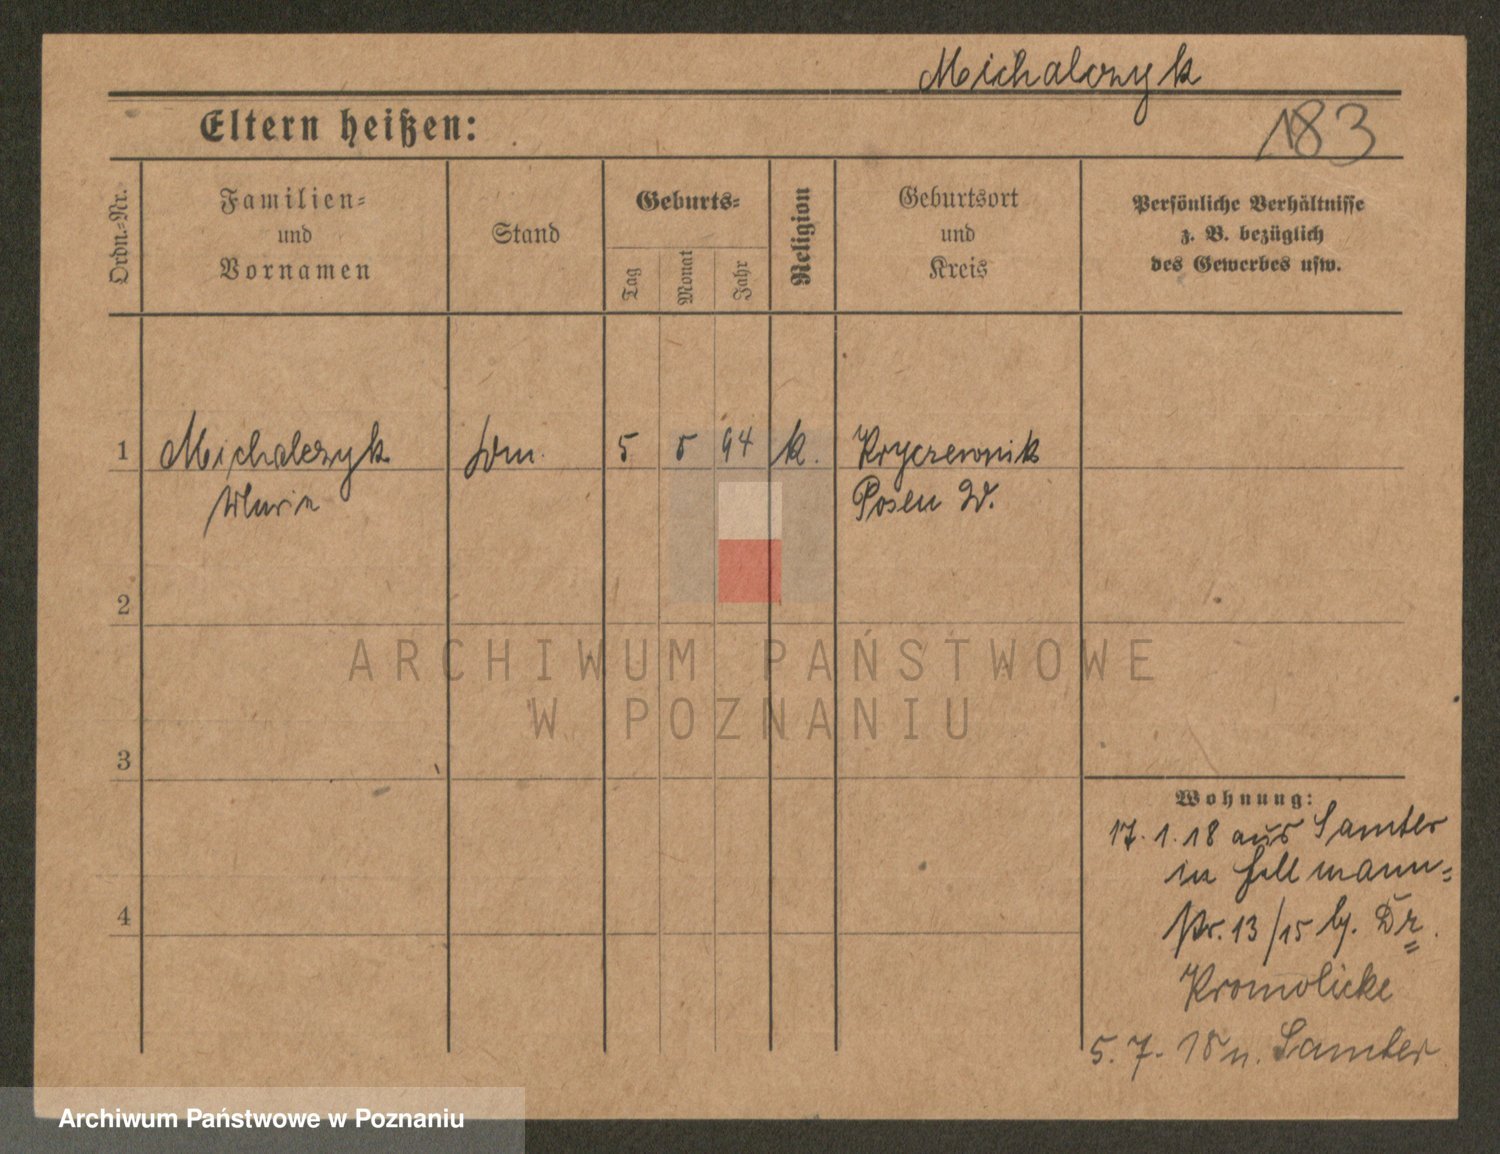 Michalczyk
183
Eltern heißen:
Ordn.-Nr.
Familien-
und
Vornamen
Stand
Geburts-
Tag
Monat
Jahr
Religion
Geburtsort
und
Kreis
Persönliche Verhältnisse
z. B. bezüglich
des Gewerbes usw.
1 Michalczyk 5 5 94 k. Kryczewnik
Posen W.
2
3
4
Wohnung:
17.1.18 aus Samter
in Hellmann=
str. 13/15 b. Dr.
Kromolicke
5.7.18 n. Samter
ARCHIWUM PAŃSTWOWE
W POZNANIU
Archiwum Państwowe w Poznaniu